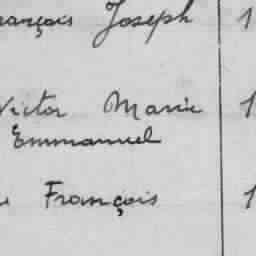 rançois Joseph 1
Victor Marie 1
Emmanuel
François 1